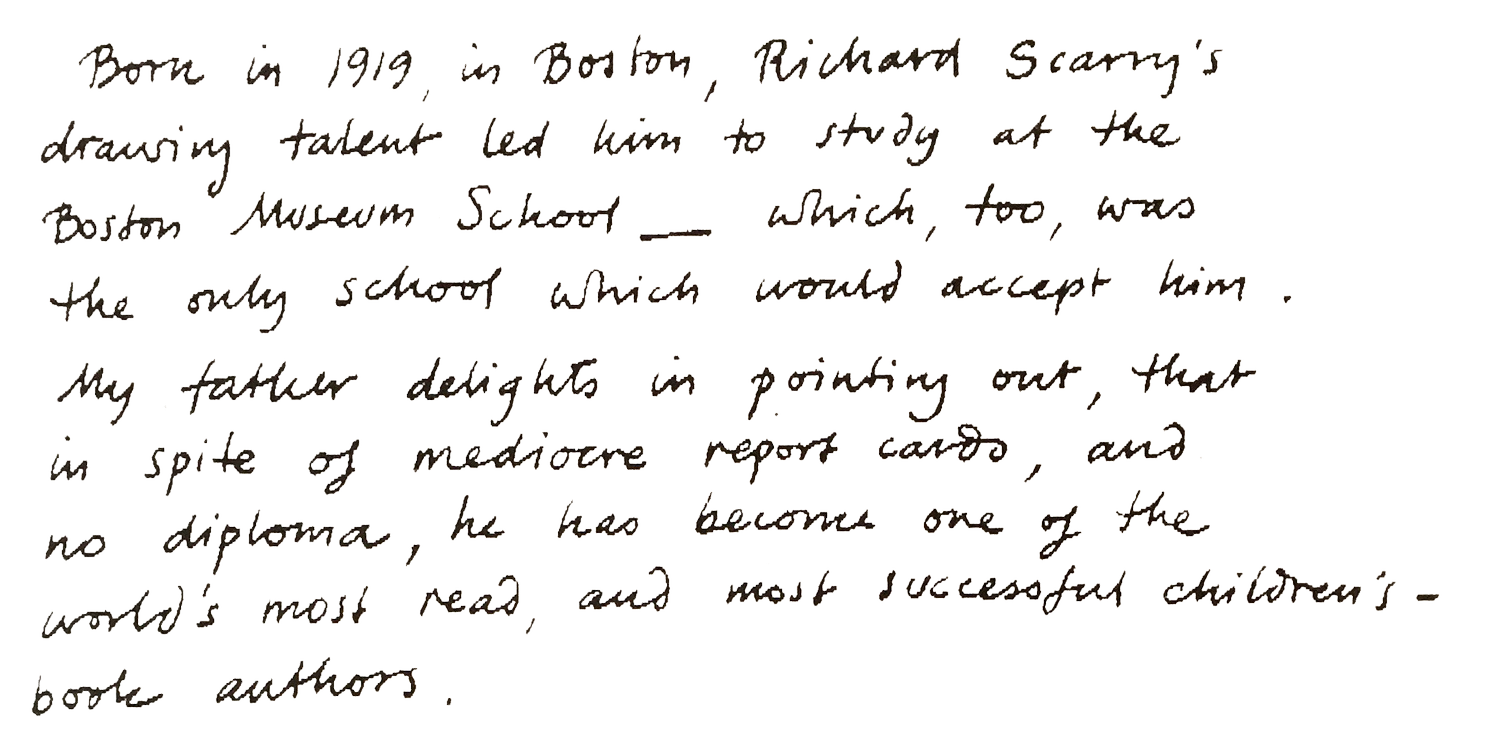 Born in 1919, in Boston, Richard Scarry's
drawing talent led him to study at the
Boston Museum School — which, too, was
the only school which would accept him.
My father delights in pointing out, that
in spite of mediocre report cards, and
no diploma, he has become one of the
world's most read, and most successful children's-
book authors.